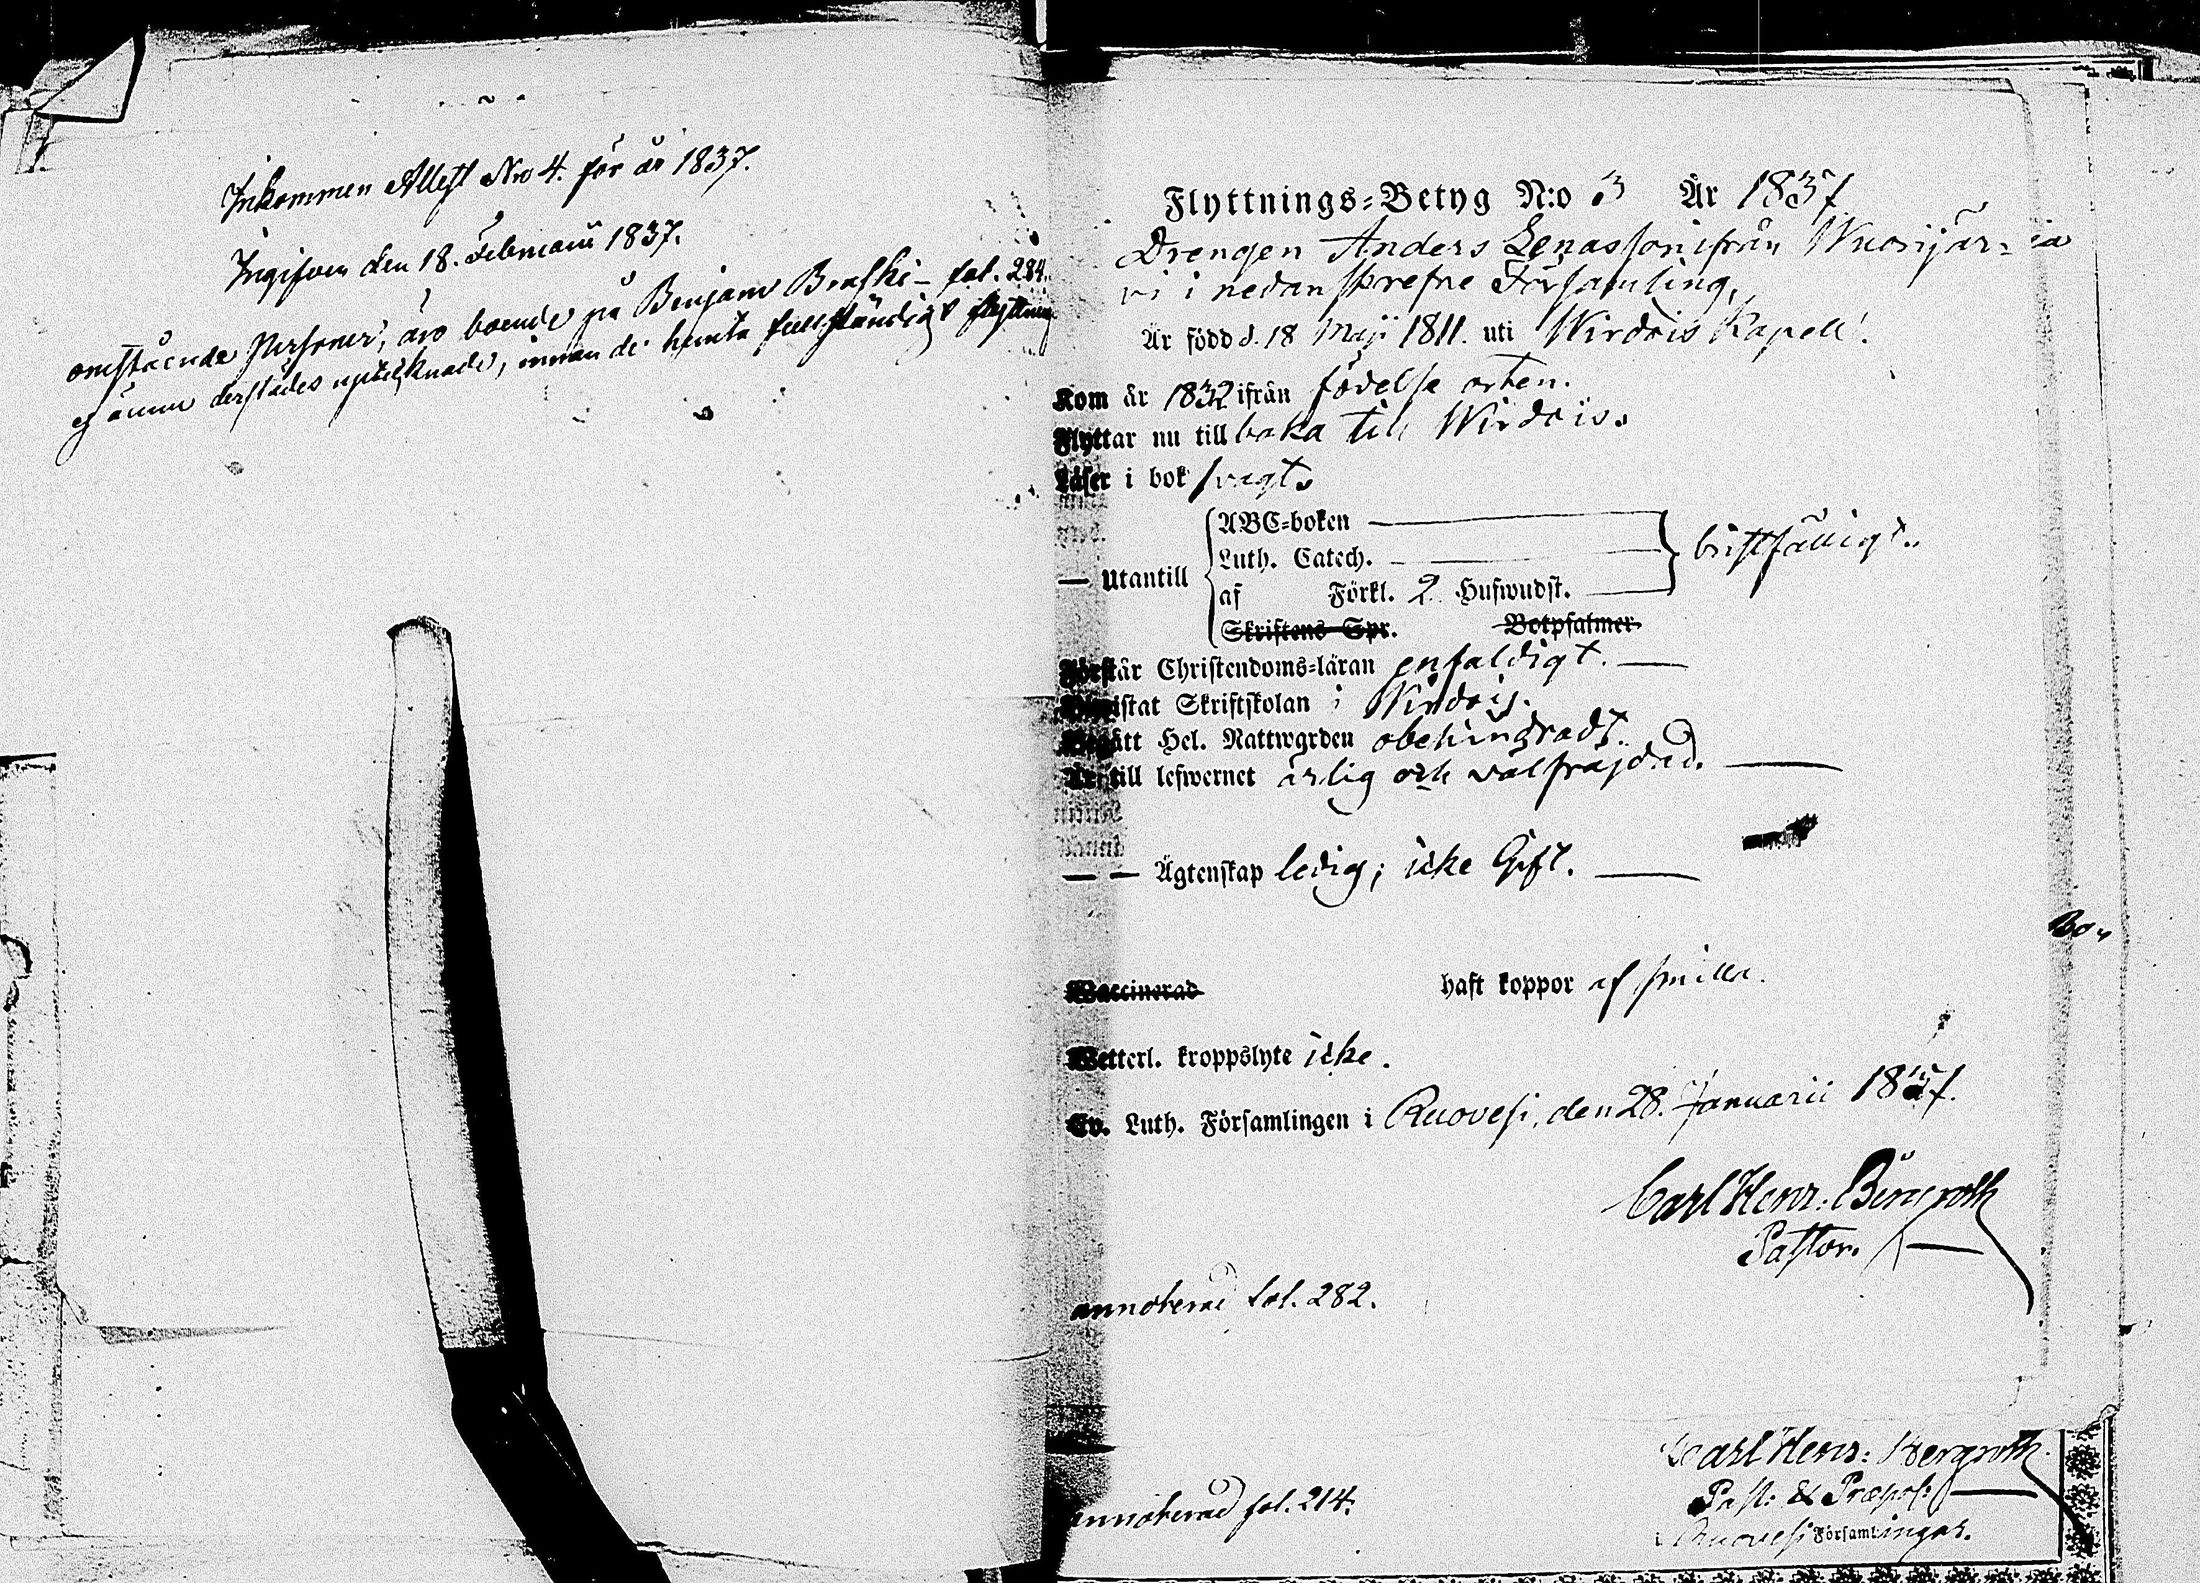 Inkommen Attest No 4. för år 1837.
Ingifven den 18. Februarii 1837.
omstående personer, äro boende på Benjam Braski – fol. 284.
ej ännu derstädes uptecknade, innan de hemta fullständigt flyttning
Flyttnings=Betyg N:o 3 År 1837
Drengen Anders Lenasson ifrån Wuorijär=
vi i nedanskrefne Församling,
Är född d. 18 Maji 1811. uti Wirdois Kapell.
Kom år 1832 ifrån födelse orten.
Flyttar nu till baka till Wirdois.
Läser i bok svagt.
— Utantill
ABC=boken
Luth. Catech.
af Förkl. 2 Hufwudst.
bristfälligt.
Skriftens Spr. Botpsalmer
Förstår Christendoms=läran enfaldigt.
Bewistat Skriftskolan i Wirdois.
Begått Hel. Nattwgrden obehindradt.
Är till lefwernet ärlig och välfräjdad.
— — Ägtenskap ledig; icke Gift.
Bo,
Waccinerad haft koppor af smitta.
Wetterl. kroppslyte icke.
Ev. Luth. Församlingen i Ruovesi, den 28. Januarii 1837.
Carl Henr: Bergroth
Pastor.
annoterad fol. 282.
Carl Henr: Bergroth.
Past: & Præpos:
annoterad fol. 214.
Ruovesi Församlingar.